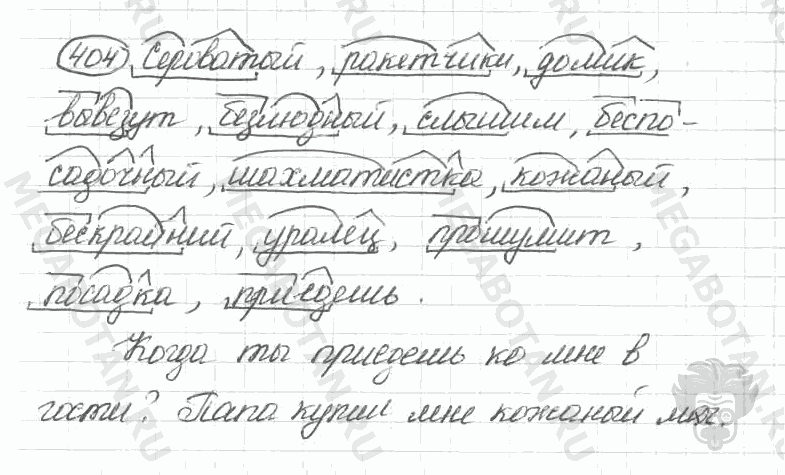 404 Сероватый, ракетчики, домик,
вывезут, безлюдный, слышим, беспо-
садочный, шахматистка, кожаный,
бескрайний, уралец, прошумит,
посадка, приедешь.
Когда ты приедешь ко мне в
гости? Папа купил мне кожаный мяч.
MEGABOTAN.RU